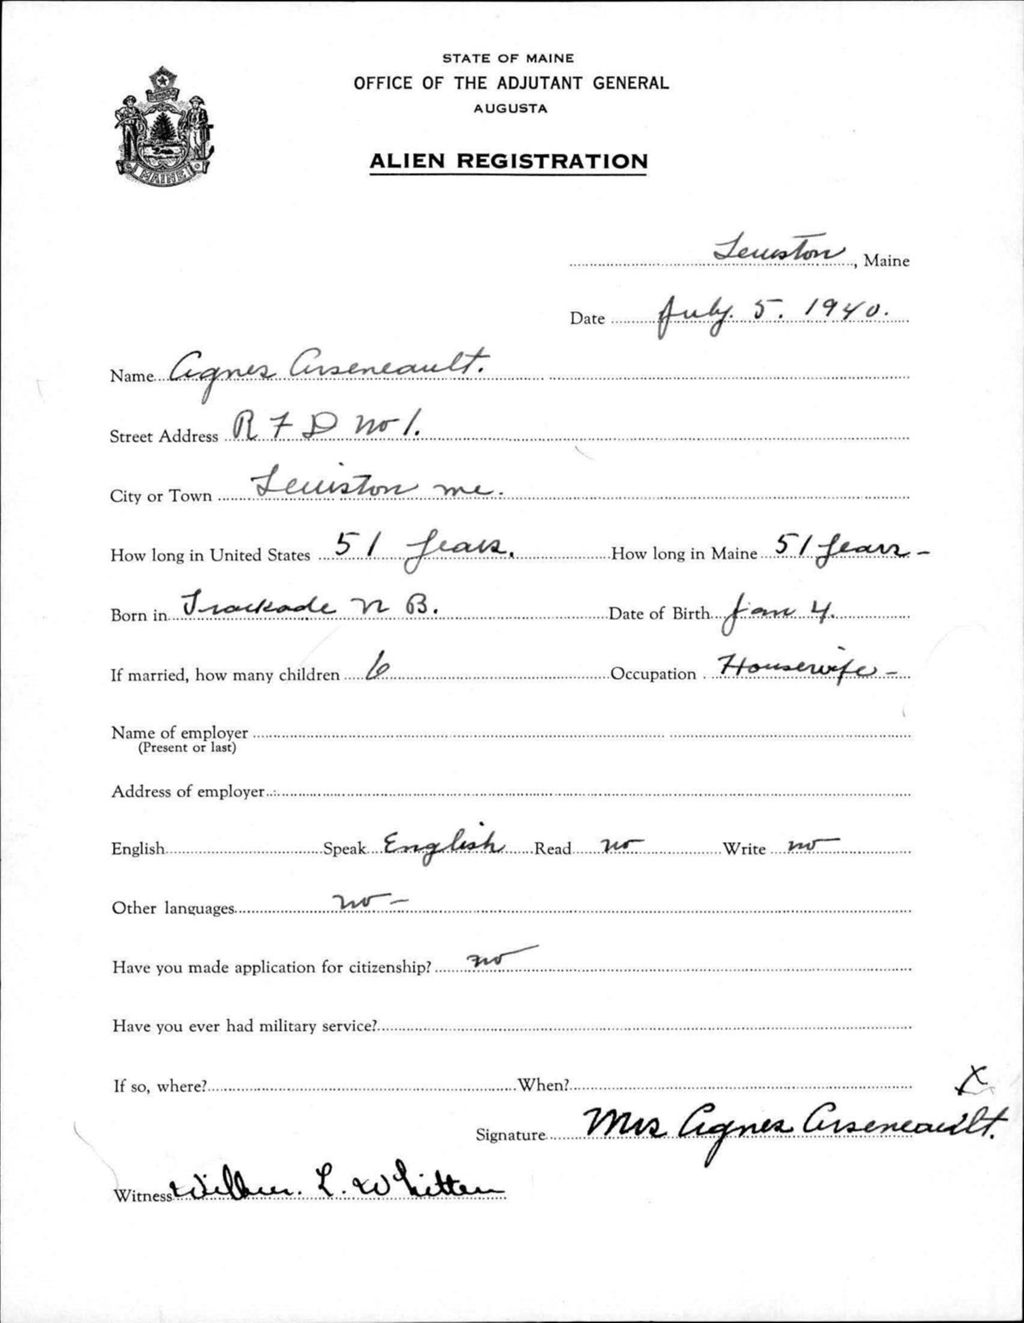 STATE OF MAINE
OFFICE OF THE ADJUTANT GENERAL
AUGUSTA
ALIEN REGISTRATION
MAINE
Lewiston, Maine
Date July. 5. 1940.
Name Agnes Arseneault.
Street Address R F D No 1.
City or Town Lewiston me.
How long in United States 51 years. How long in Maine 51 years -
Born in Trackade N B. Date of Birth Jan 4.
If married, how many children 6 Occupation Housewife -
Name of employer
(Present or last)
Address of employer
English Speak English Read no Write no
Other languages no -
Have you made application for citizenship? no
Have you ever had military service?
If so, where? When?
X
Signature Mrs Agnes Arseneault.
Witness Wilbur. L. Whitten